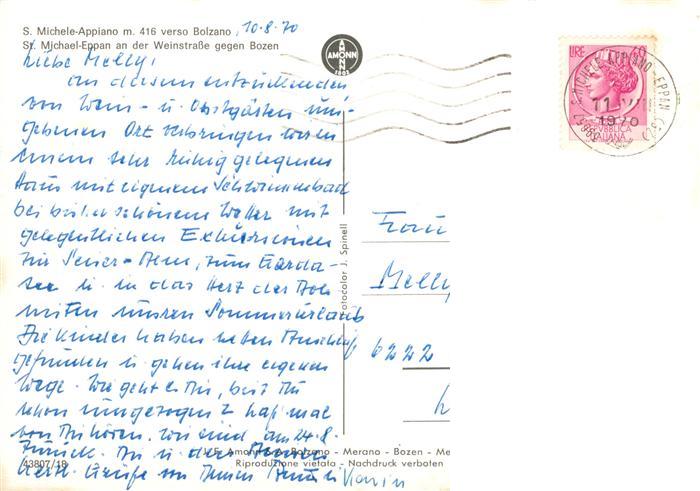 S. Michele-Appiano m. 416 verso Bolzano, 10.8.70
St. Michael-Eppan an der Weinstraße gegen Bozen
Liebe Melly!
An diesem entzückenden
von Wein- u. Obstgärten um-
gebenen Ort verbringen wir in
einem sehr ruhig gelegenen
Haus mit eigenem Schwimmbad
bei bisher schönem Wetter mit
gelegentlichen Exkursionen
zur Seiser-Alm, zum Garda-
see u. in das Herz der Dolo
miten unseren Sommerurlaub
Die Kinder haben netten Anschluß
gefunden u. gehen ihre eigenen
Wege. Wie geht es Dir, bist Du
schon umgezogen? Laß mal
von Dir hören. Wir sind am 24.8.
zurück. Dir u. den
Herzl. Grüße von Deinen Karin
AMONN
1802
LIRE 40
REPUBBLICA
ITALIANA
S. MICHELE APPIANO - EPPAN
1970
Fotocolor J. Spinell
Frau
Melly
6222
J. F. Amonn S.p.A. Bolzano - Merano - Bozen - Me
43807/18
Riproduzione vietata - Nachdruck verboten